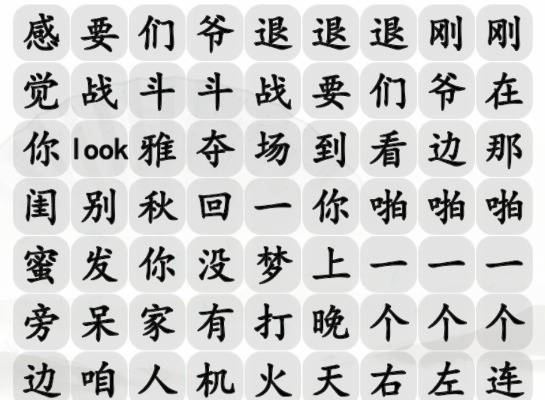 感要们爷退退退刚刚
觉战斗斗战要们爷在
你look雅夺场到看边那
闺别秋回一你啪啪啪
蜜发你没梦上一一一
旁呆家有打晚个个个
边咱人机火天右左连